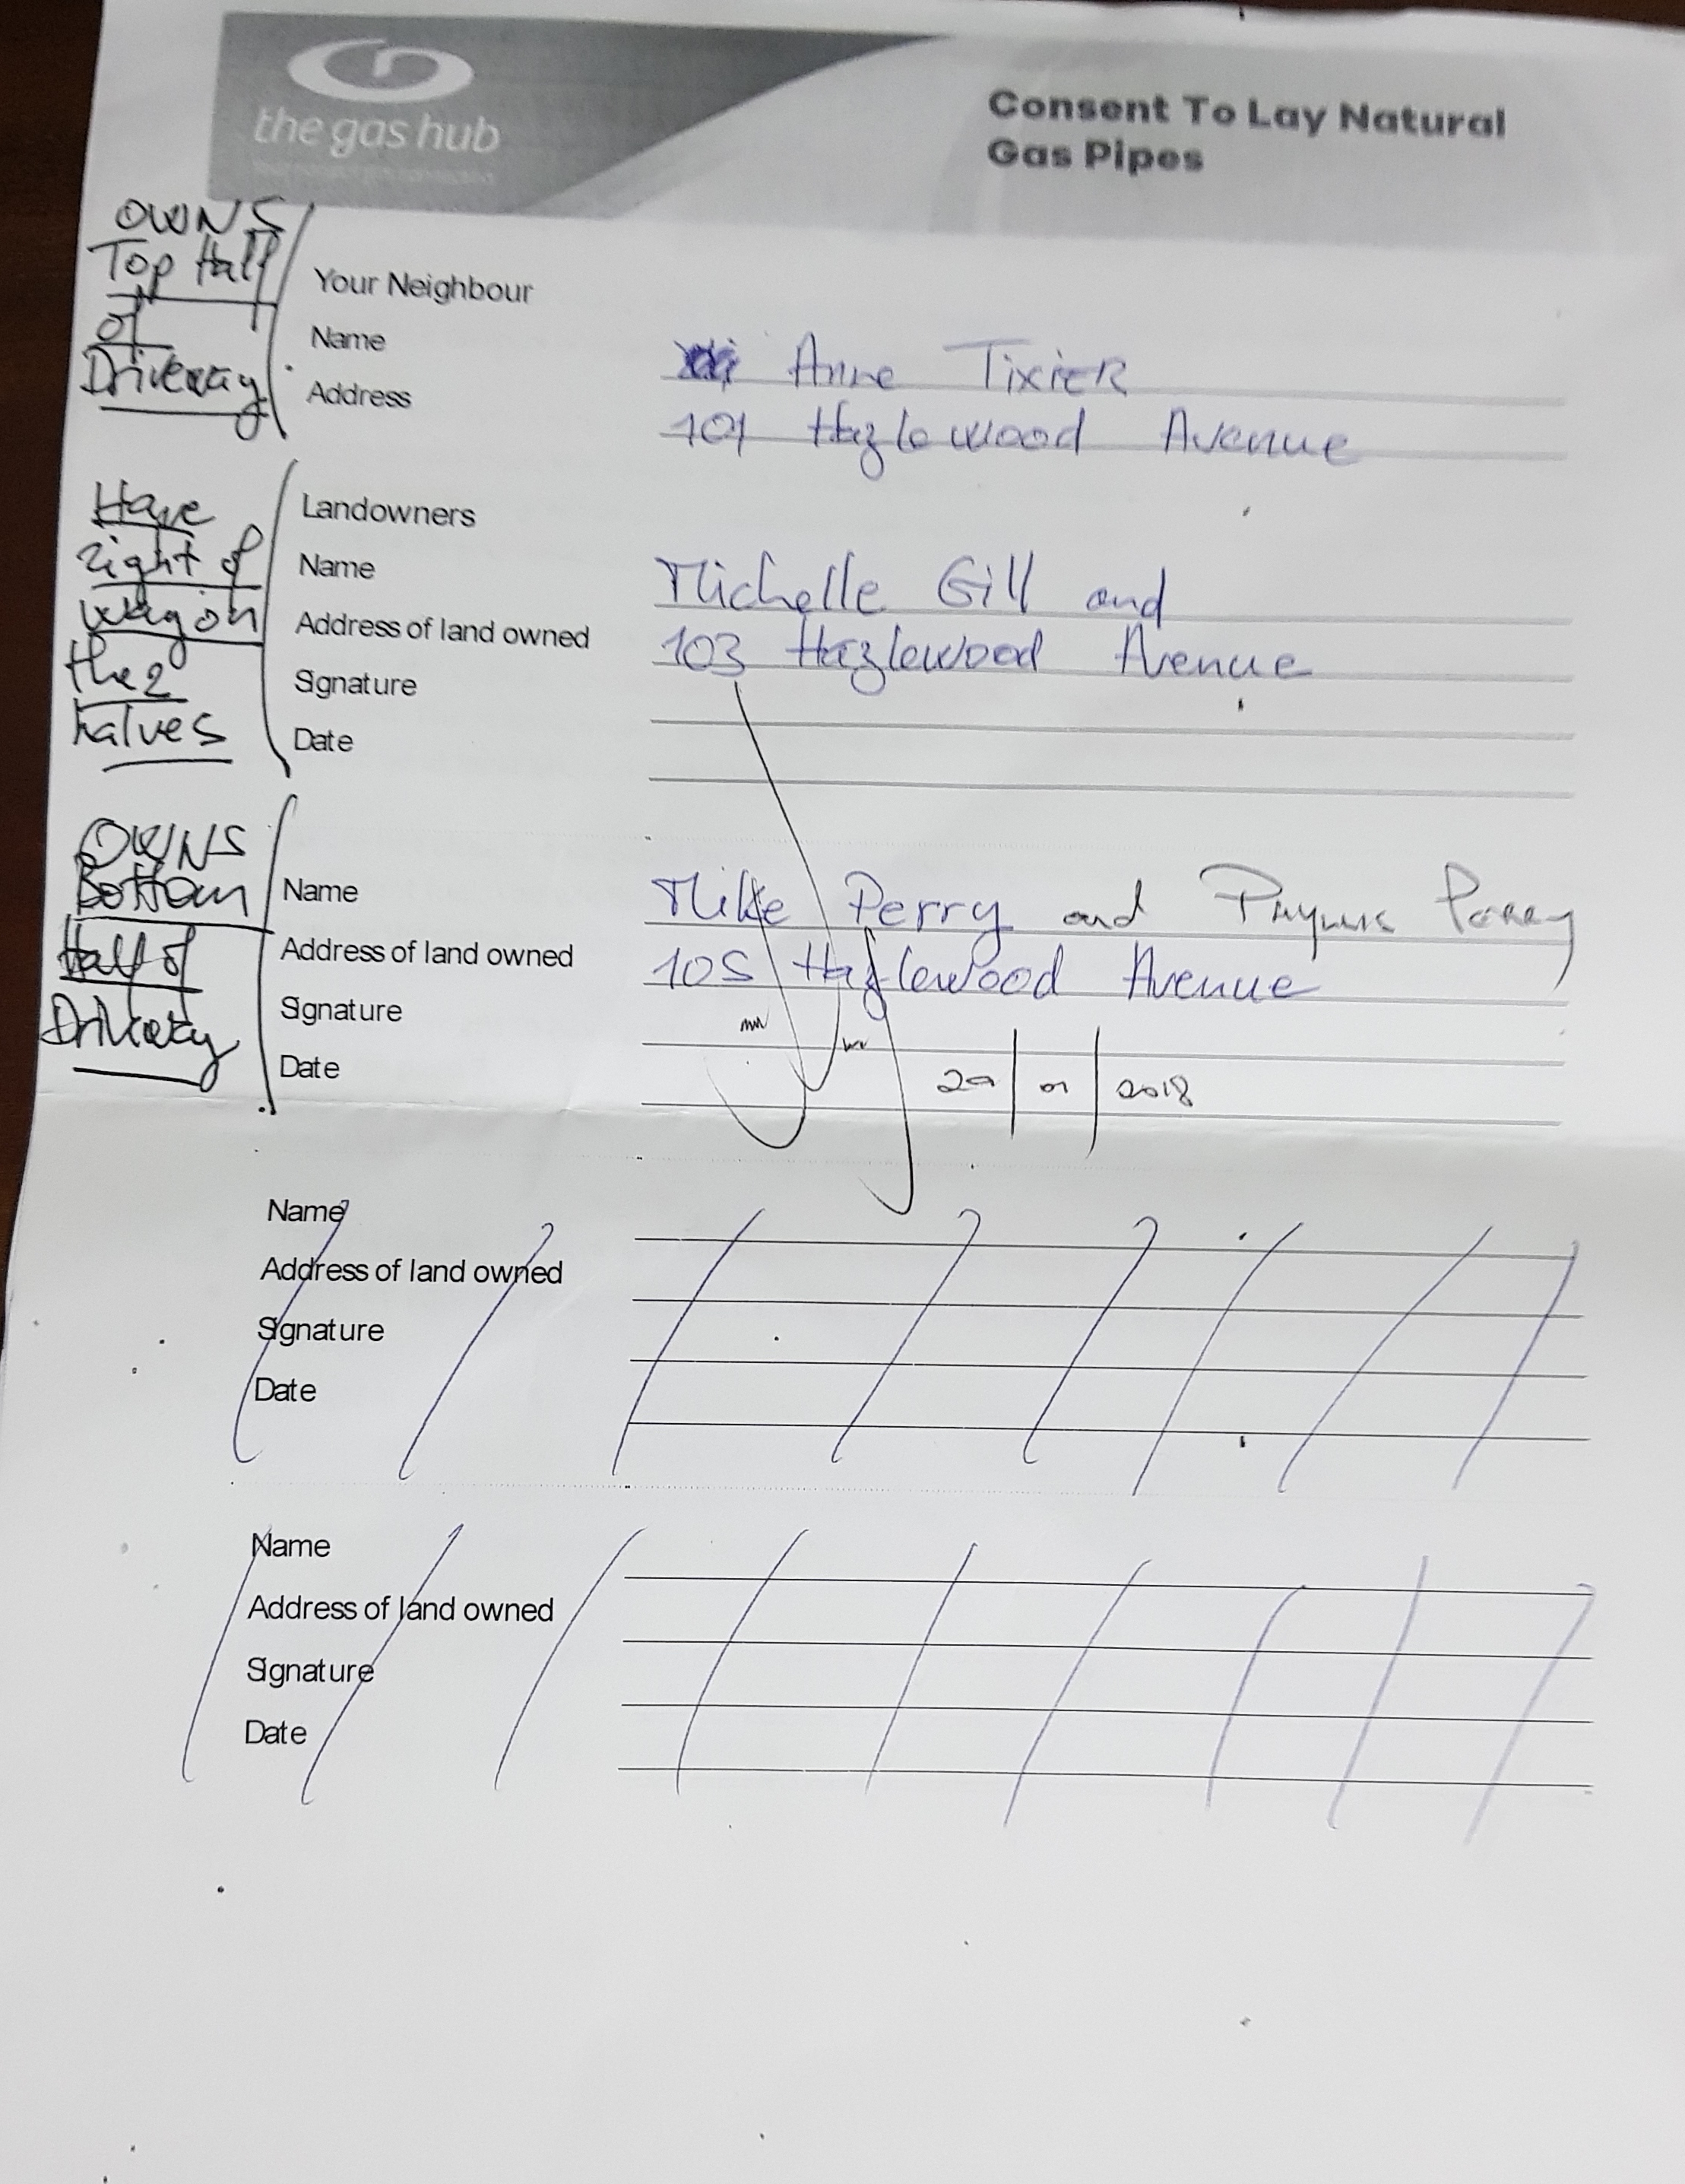 the gas hub
Consent To Lay Natural
Gas Pipes
OWNS
Top Half
of
Driveway
Your Neighbour
Name Anne Tixier
Address 101 Hazlewood Avenue
Have
right of
way on
the 2
halves
Landowners
Name Michelle Gill and
Address of land owned 103 Hazlewood Avenue
Signature
Date
OWNS
Bottom
Half of
Driveway
Name Mike Perry and Perry
Address of land owned 105 Hazlewood Avenue
Signature
Date 2018
Name
Address of land owned
Signature
Date
Name
Address of land owned
Signature
Date